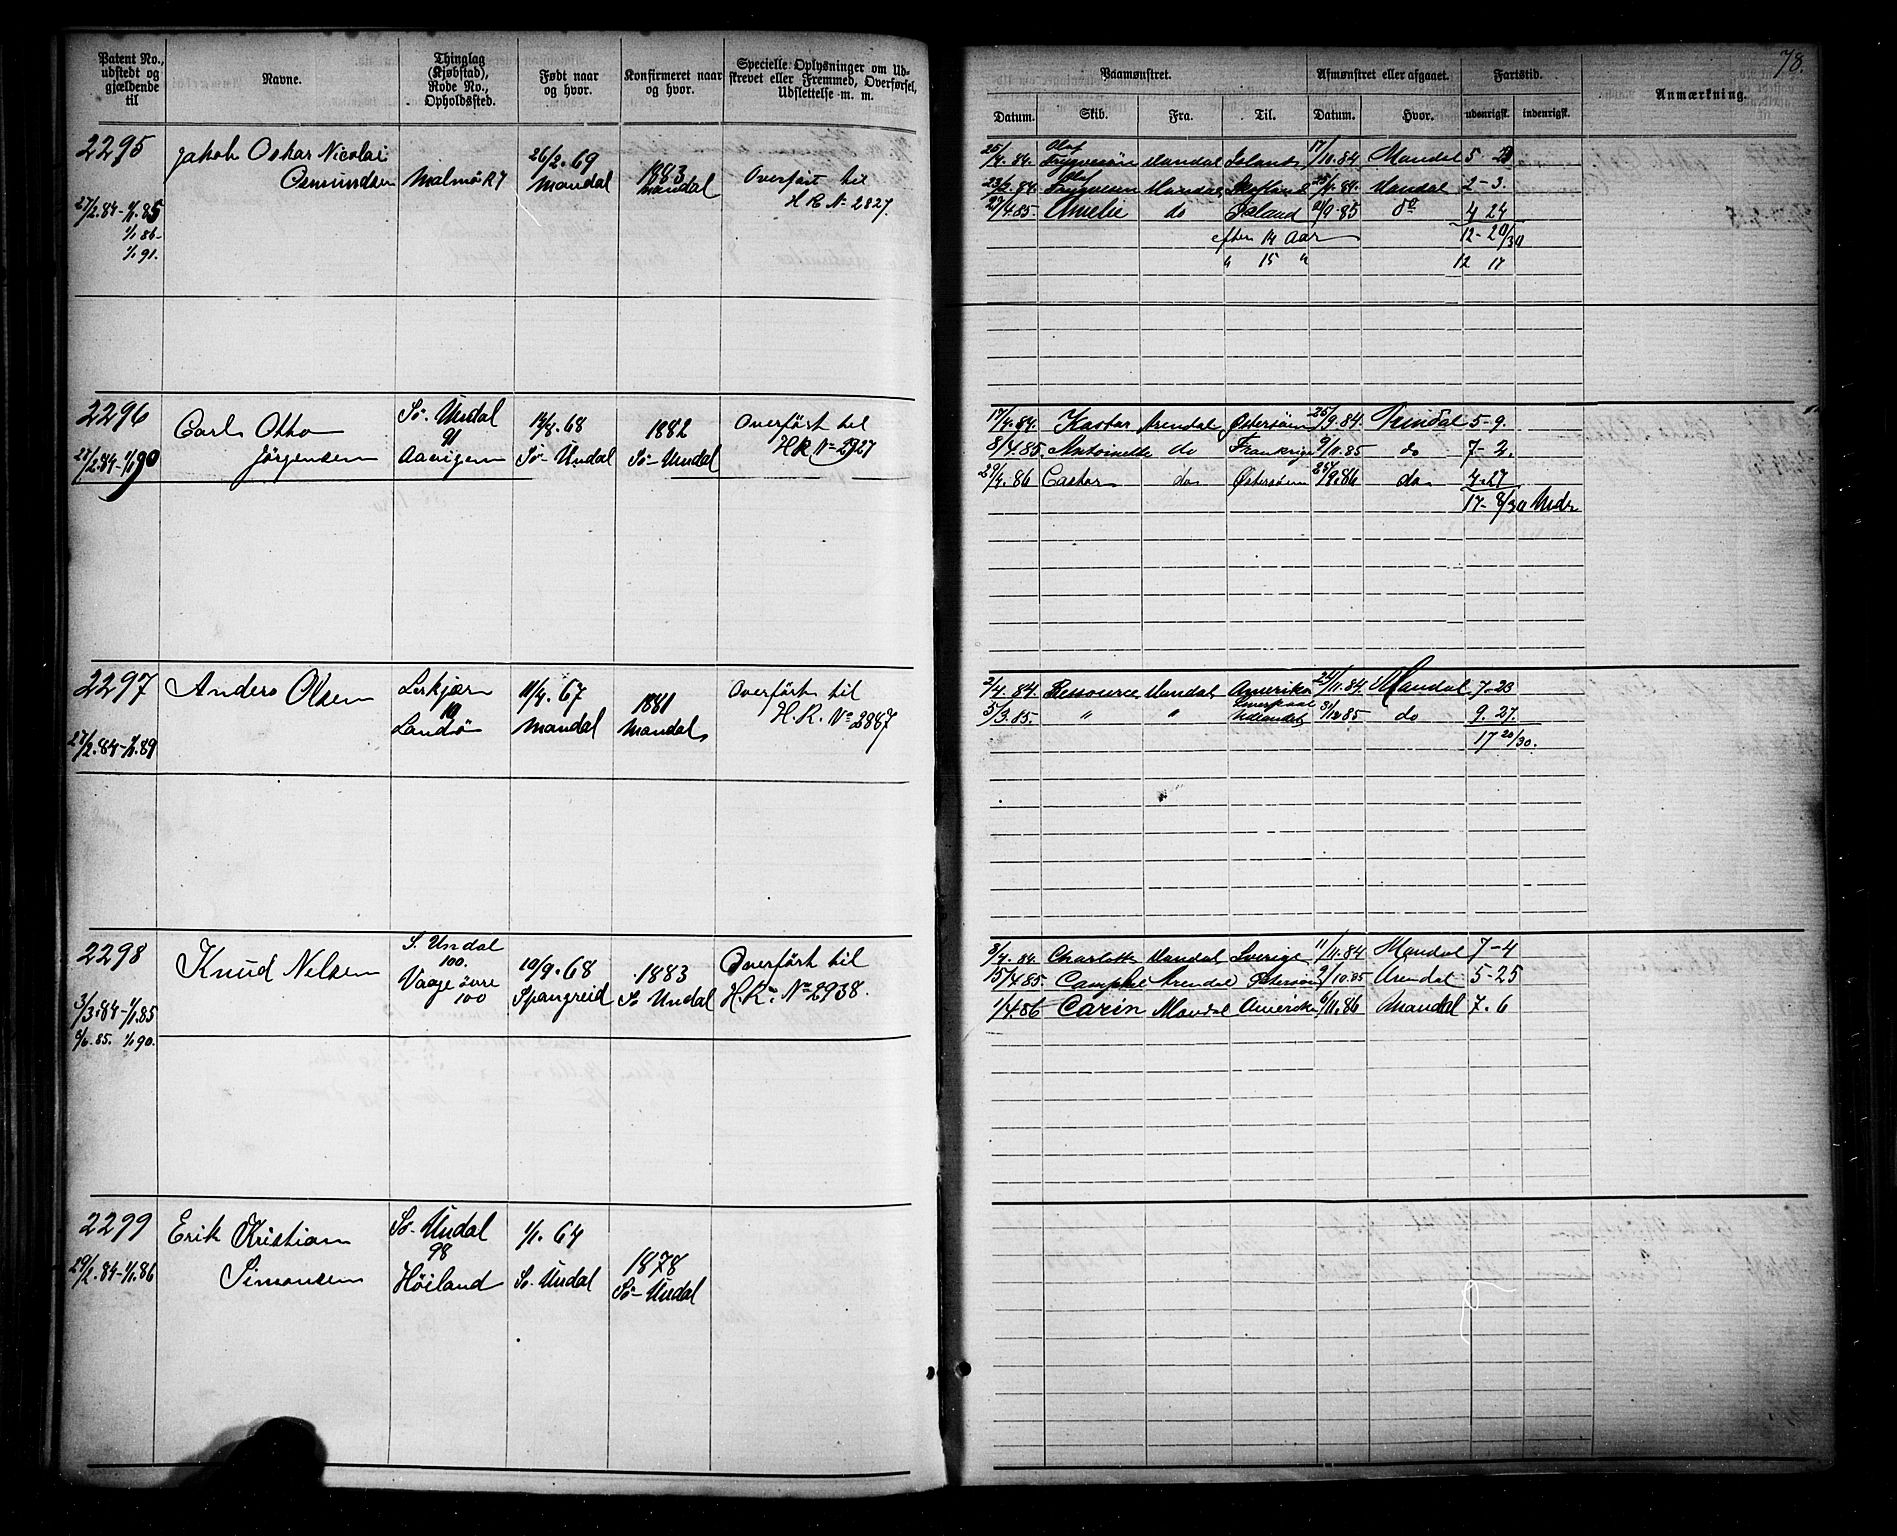 78.
Patent No., udstedt og gjældende til
Navne.
Thinglag (Kjøbstad), Rode No., Opholdssted.
Født naar og hvor.
Konfirmeret naar og hvor.
Specielle Oplysninger om Udskrevet eller Fremmed, Overførsel, Udslettelse m. m.
Paamønstret.
Afmønstret eller afgaaet.
Fartstid.
Anmærkning.
Datum. Skib. Fra. Til. Datum. Hvor. udenrigsk. indenrigsk.
2295
Jakob Oskar Nicolai
Osmundsen
Malmö R 7
26/2. 69
Mandal
1883
Mandal
Overført til
H R No 2827.
27/2.84-1/1.85
1/1 86-
1/1 91.
25/4.84. Olaf Trygvesön Mandal Island 17/10.84 Mandal 5 - 23
23/2.84 Olaf Trygvesen Mandal Skotland 25/4.84. Mandal 2-3.
27/4.85. Amelie do Island 21/9.85 do 4 24
efter 14 Aar 12-20/30
" 15 " 12 17
2296
Carl Otto
Jörgensen
Sö. Undal
91
Aavigen
14/8.68
Sö-Undal
1882
Sö-Undal
Overført til
H R No 2927
28/2.84-1/1 90
17/4.84. Kastor Arendal Østersöen 25/9.84. Arendal 5-9.
8/4.85. Antoinette do Frankrige 9/11.85 do 7-2.
29/4.86 Castor do Østersöen 25/9.86 do 4-27
17-8/30 Mdr
2297
Anders Olsen
Lerkjær
10
Landö
11/4.67
Mandal
1881
Mandal
Overført til
H. R. No 2887
27/2.84-1/1.89
2/4.84. Ressource Mandal Amerika 24/11.84. Mandal 7-23
5/3.85. " " Liverpool Udlandet 31/12.85 do 9.27.
17 20/30.
2298
Knud Nilsen
S. Undal
100.
Vaage övre
100
10/9.68
Spangreid
1883
Sö Undal
Overført til
H. R. No 2938.
3/3.84-1/1.85
1/1 90.
3/4.84. Charlotte Mandal Sverige 11/11.84 Mandal 7-4
15/4.85. Arendal Østersöen 9/10.85 Arendal 5-25
1/4.86 Carin Mandal Amerika 6/11.86 Mandal 7.6
2299
Erik Kristian
Simonsen
Sö-Undal
98
Höiland
1/1.64
Sö. Undal
1878
Sö-Undal
29/2.84-1/1.86